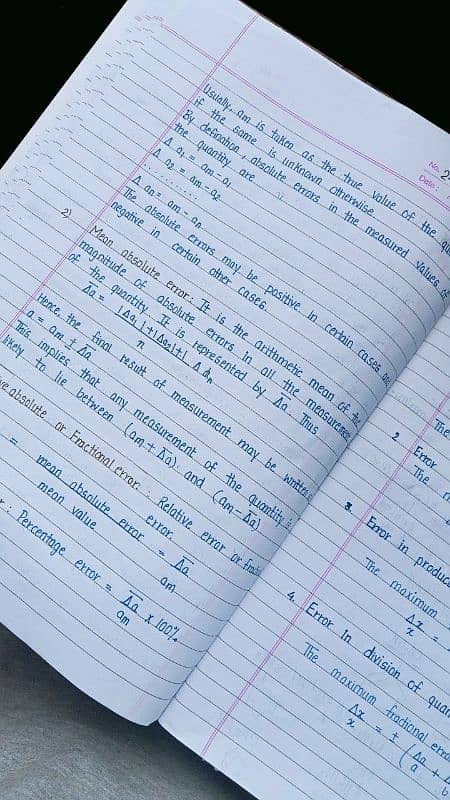 No. 2
Date :
Usually am is taken as the true value of the
if the same is unknown otherwise.
By defination, absolute errors in the measured values of
the quantity are
Δ a₁ = am - a₁
Δ a₂ = am - a₂
.......
Δ an = am - an
The absolute errors may be positive in certain cases
negative in certain other cases.
2) Mean absolute error : It is the arithmetic mean of the
magnitude of absolute errors in all the measuremen
of the quantity. It is represented by Δ̅a̅. Thus
Δ̅a̅ = |Δa₁|+|Δa₂|+|.Δan
n
Hence, the final result of measurement may be written
a = am ± Δ̅a̅
This implies that any measurement of the quantity is
likely to lie between (am+Δ̅a̅) and (am-Δ̅a̅)
ve absolute or Fractional error. : Relative error or
error.
= mean absolute error = Δ̅a̅
mean value am
r : Percentage error = Δ̅a̅ × 100%
am
The
2. Error
The
3. Error in produc
The maximum
Δx =
x
4. Error In division of quan
The maximum fractional erro
Δx = ± (Δa +
x a b